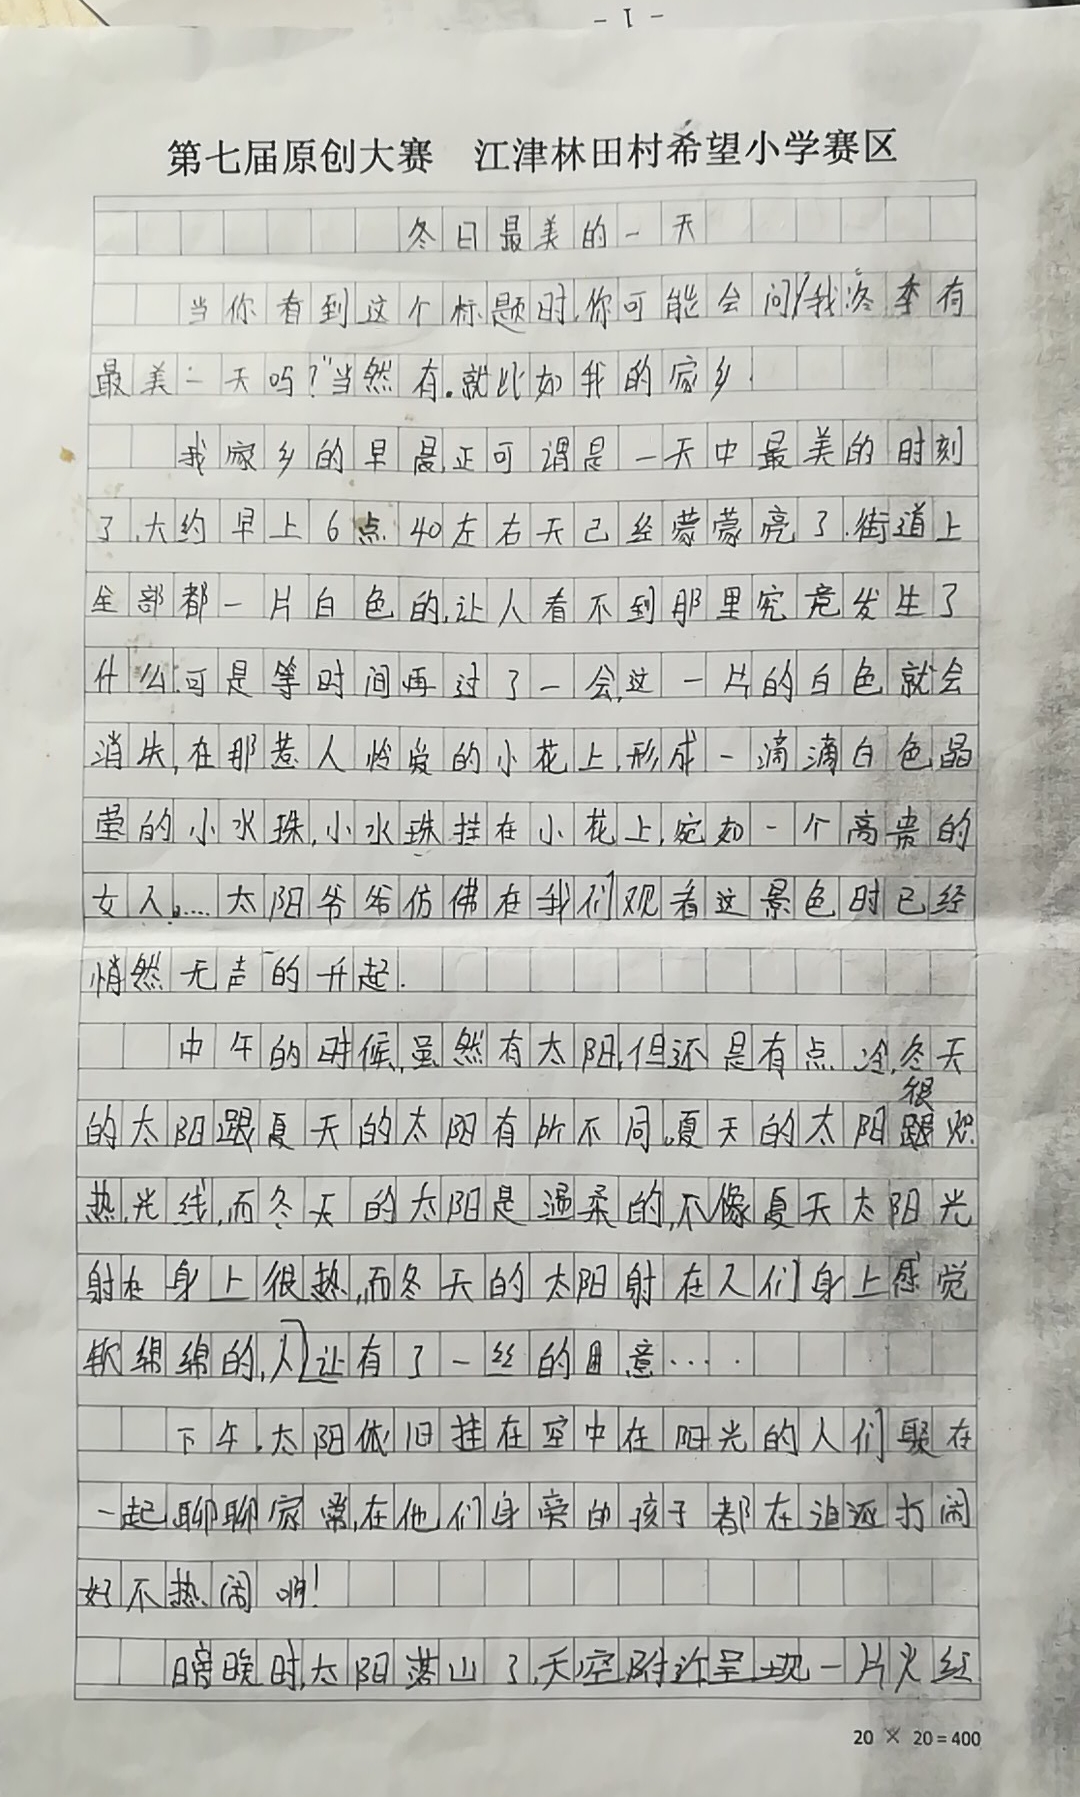 - 1 -
第七届原创大赛 江津林田村希望小学赛区
冬日最美的一天
当你看到这个标题时,你可能会问"我冬季有
最美一天吗?"当然有。就比如我的家乡.
我家乡的早晨,正可谓是一天中最美的时刻
了,大约早上6点40左右天已经蒙蒙亮了.街道上
全部都一片白色的,让人看不到那里究竟发生了
什么,可是等时间再过了一会,这一片的白色就会
消失,在那惹人怜爱的小花上,形成一滴滴白色晶
莹的小水珠,小水珠挂在小花上,宛如一个高贵的
女人。....太阳爷爷仿佛在我们观看这景色时已经
悄然无声的升起.
中午的时候,虽然有太阳,但还是有点冷,冬天
的太阳跟夏天的太阳有所不同。夏天的太阳很炽
热,光线,而冬天的太阳是温柔的,不像夏天太阳光
射在身上很热,而冬天的太阳射在人们身上感觉
软绵绵的,人让有了一丝的困意....
下午,太阳依旧挂在空中在阳光的人们聚在
一起聊聊家常,在他们身旁的孩子都在追逐打闹
好不热闹啊!
傍晚时,太阳落山了,天空附近呈现一片火红
20 × 20=400